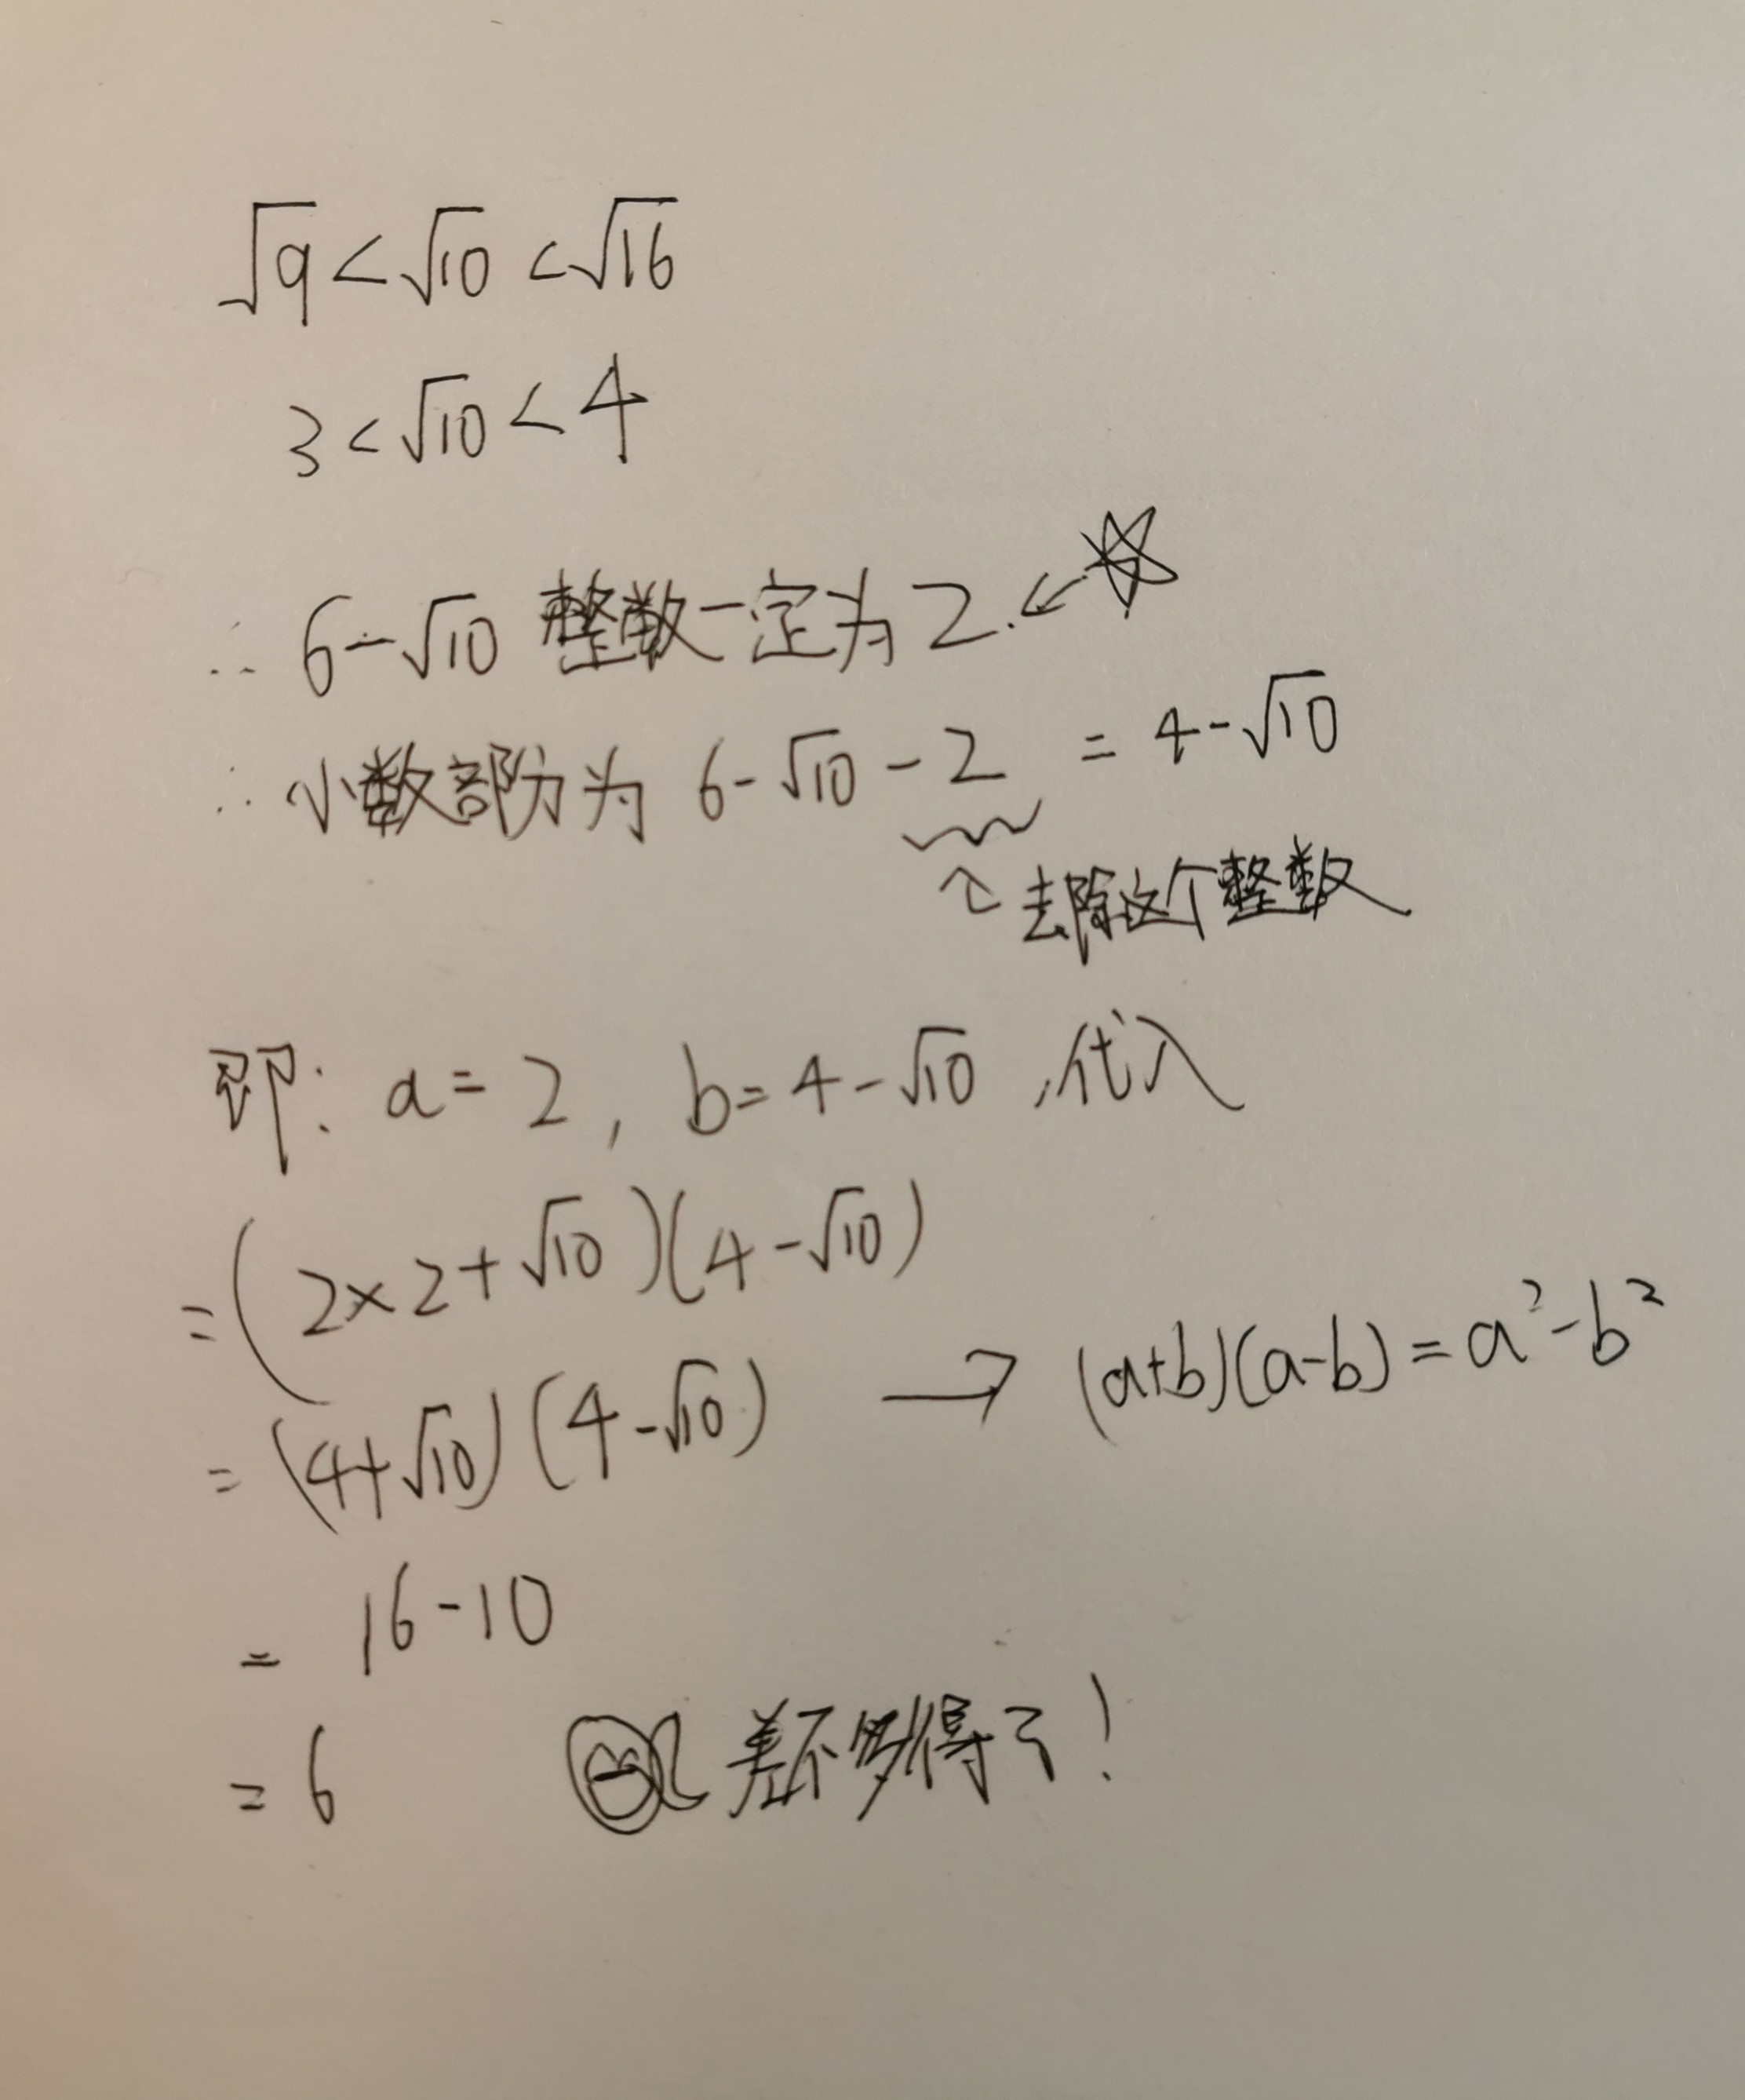 √9 < √10 < √16
3 < √10 < 4
∴ 6-√10 整数一定为2.
∴ 小数部分为 6-√10-2 = 4-√10
去除这个整数
即: a=2, b=4-√10, 代入
=(2×2+√10)(4-√10)
=(4+√10)(4-√10) → (a+b)(a-b)=a²-b²
= 16-10
= 6 差不多得了!